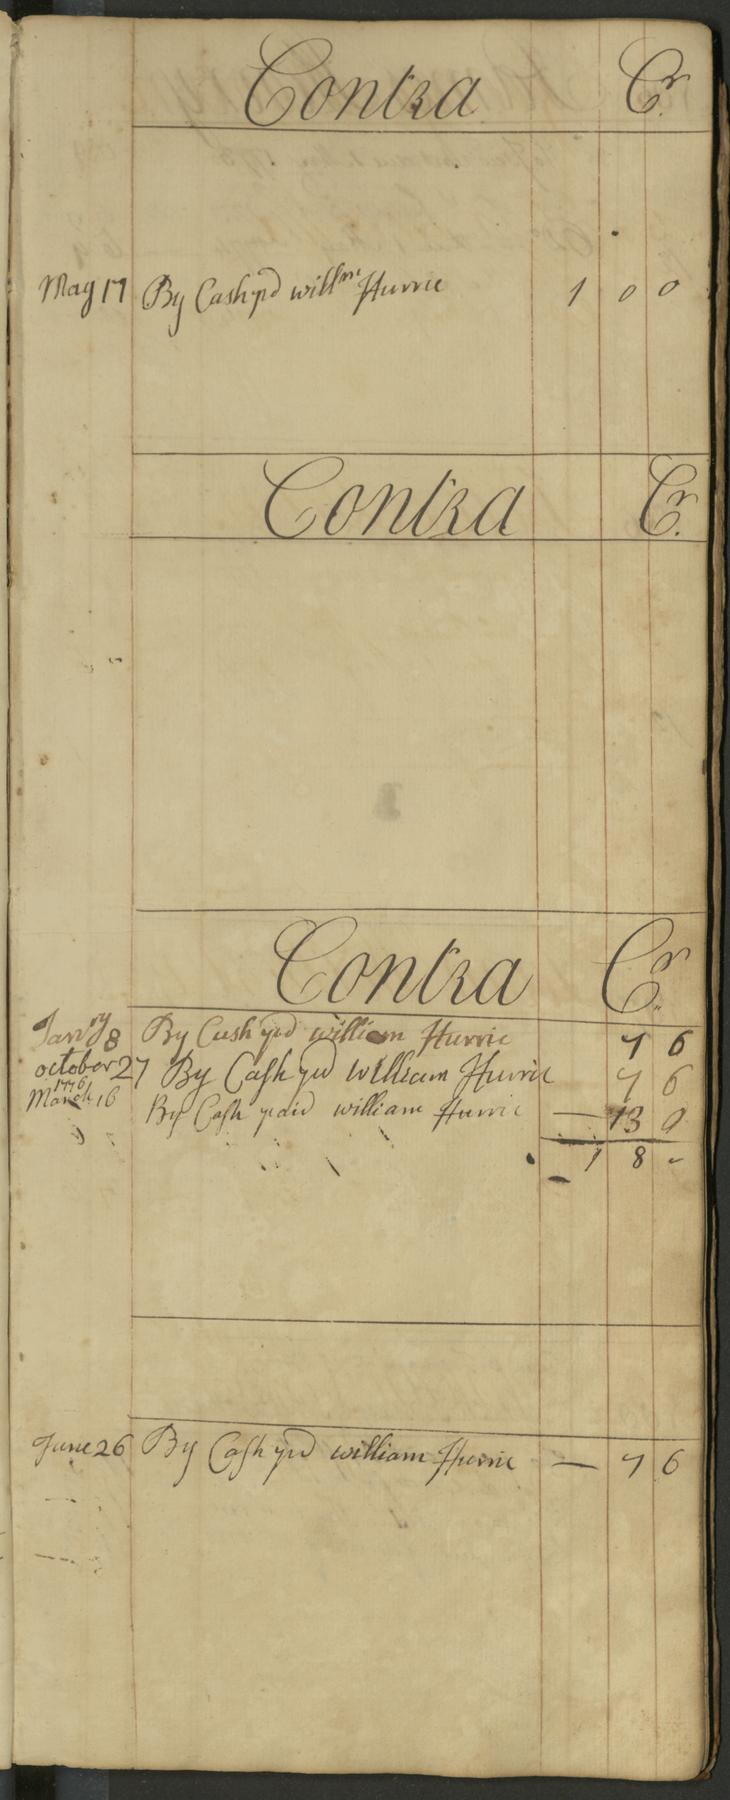 Contra Cr.
May 17 By Cash pd willm Hurrie 1 0 0
Contra Cr.
Contra Cr.
Janry 8 By Cash pd william Hurrie 7 6
october 27 By Cash pd william Hurrie 7 6
1776
March 16 By Cash paid william Hurrie — 13 0
1 8 -
June 26 By Cash pd william Hurrie — 7 6